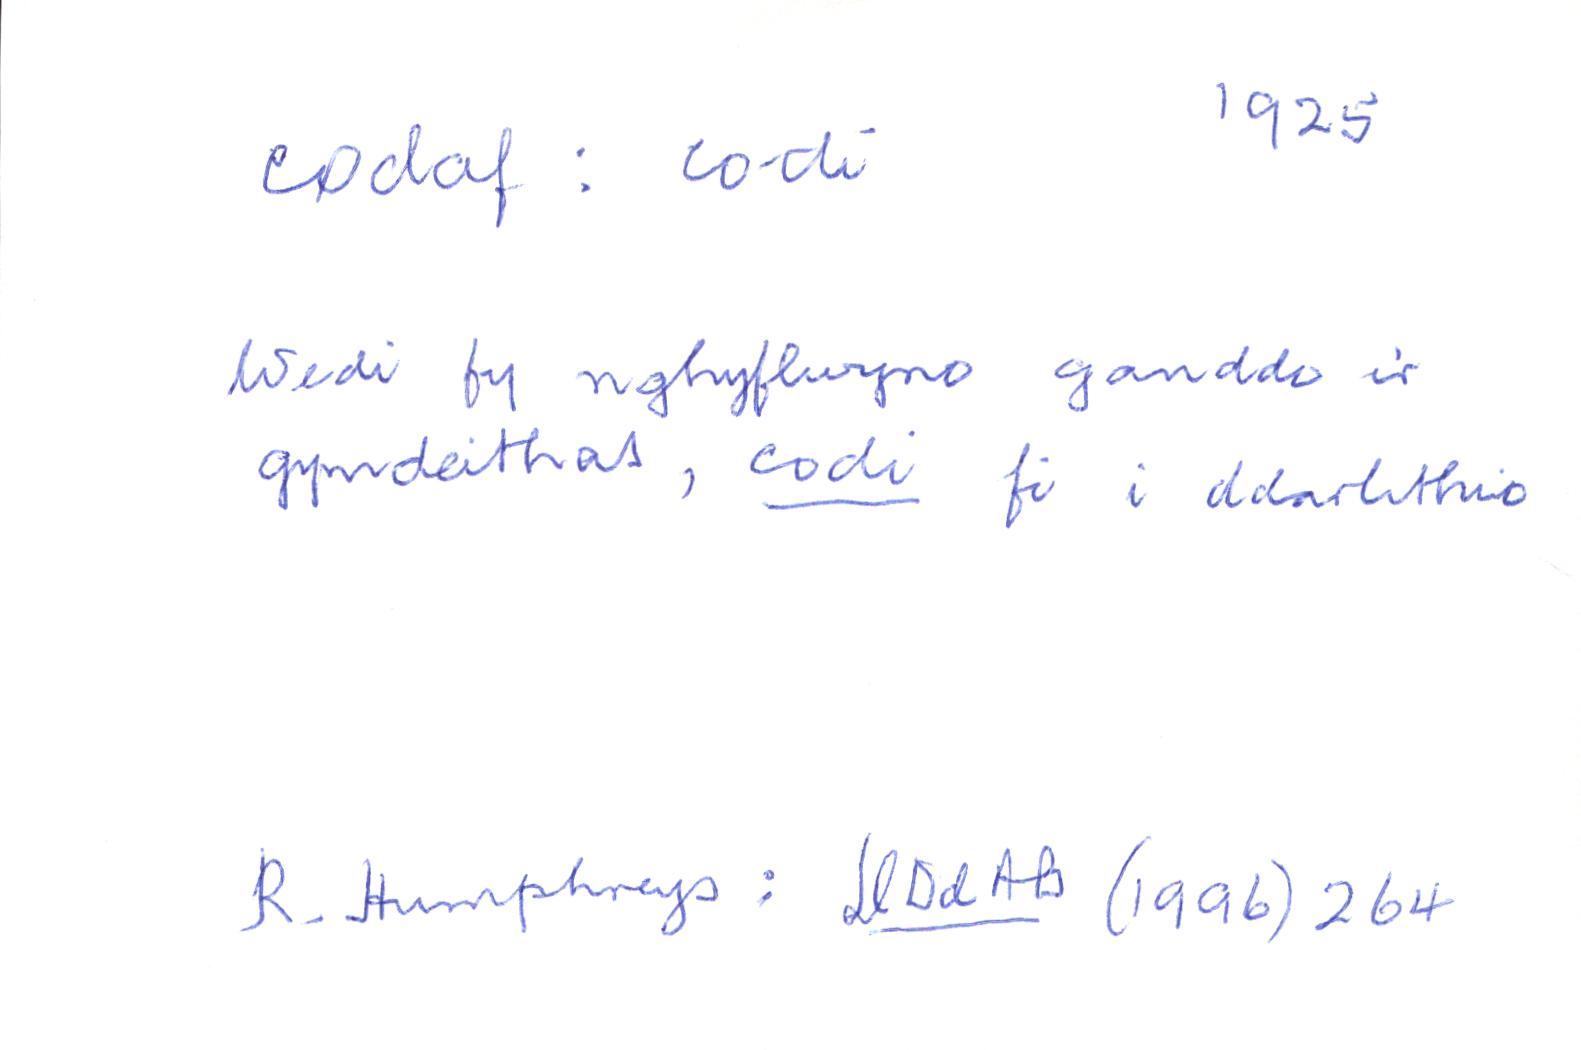 1925
codaf : codi
Wedi fy nghyflwyno ganddo i'r
gymdeithas, codi fi i ddarlithio
R. Humphreys : LlDdAB (1996) 264